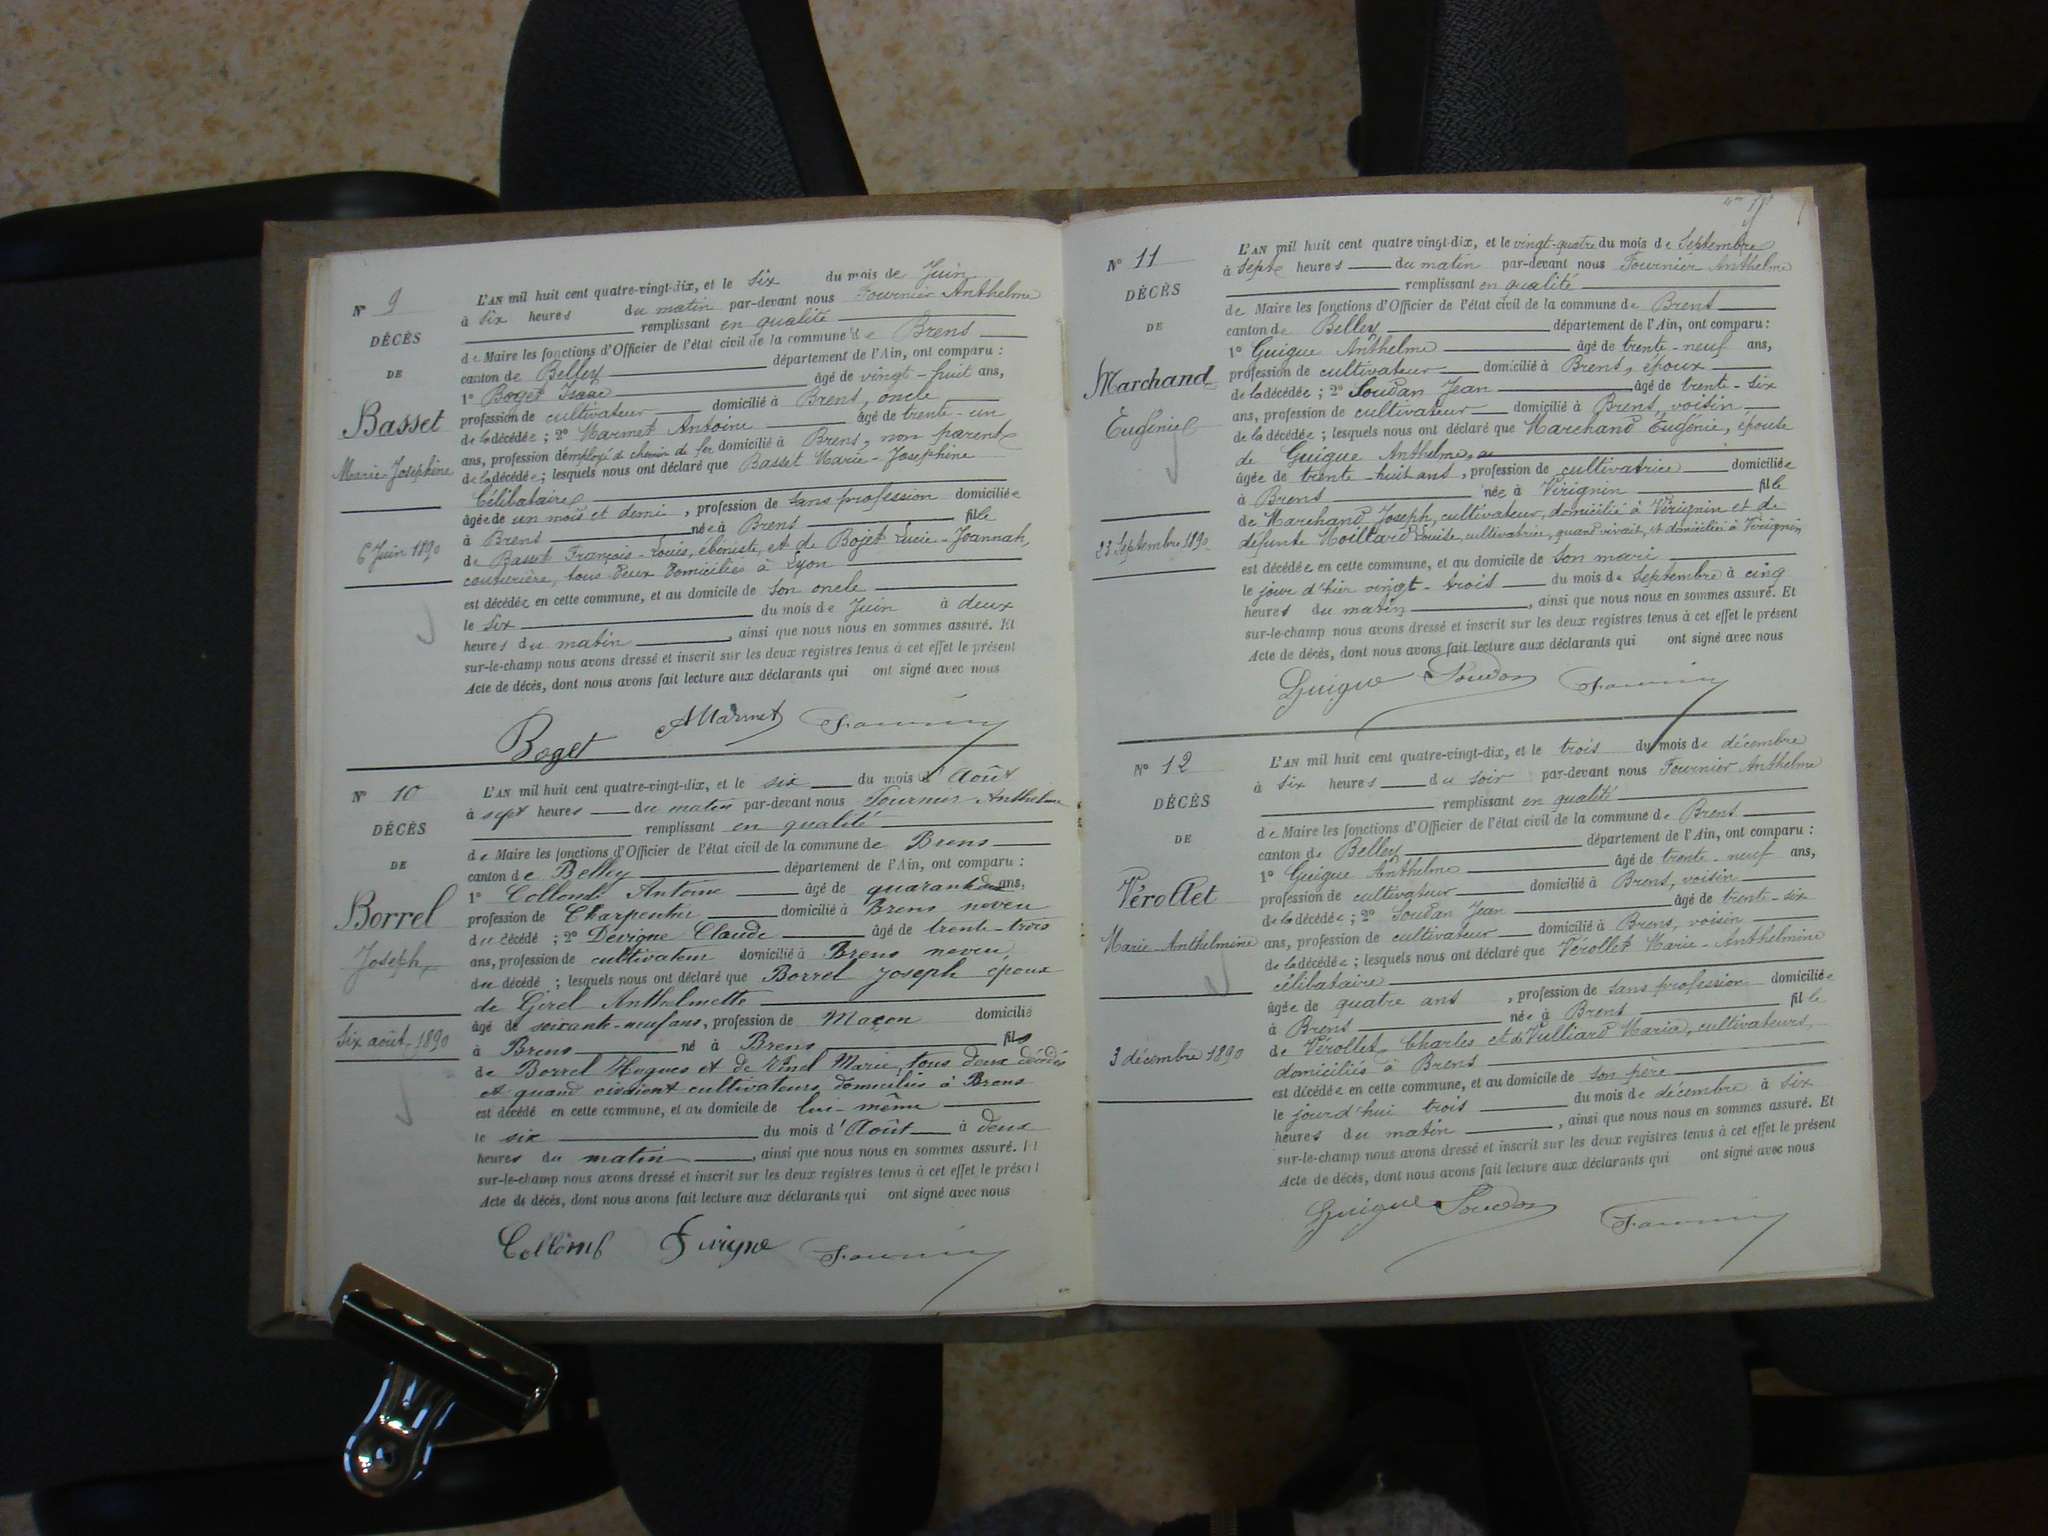 N° 9
DÉCÈS
DE
Basset
Marie-Joséphine
6 Juin 1890
L'AN mil huit cent quatre-vingt-dix, et le six du mois de Juin
à six heures du matin par-devant nous Fournier Anthelme
remplissant en qualité
de Maire les fonctions d'Officier de l'état civil de la commune de Brens
canton de Belley département de l'Ain, ont comparu :
1° Boget Isaac âgé de vingt-huit ans,
profession de cultivateur domicilié à Brens, oncle
de la décédée ; 2° Marmet Antoine âgé de trente-un
ans, profession d'employé de chemin de fer domicilié à Brens, non parent
de la décédée ; lesquels nous ont déclaré que Basset Marie-Joséphine
Célibataire
âgée de un mois et demi, profession de sans profession domiciliée
à Brens née à Brens fille
de Basset François-Louis, ébéniste, et de Bojet Lucie-Joannah,
couturière, tous deux domiciliés à Lyon
est décédée en cette commune, et au domicile de son oncle
le six du mois de Juin à deux
heures du matin, ainsi que nous nous en sommes assuré. Et
sur-le-champ nous avons dressé et inscrit sur les deux registres tenus à cet effet le présent
Acte de décès, dont nous avons fait lecture aux déclarants qui ont signé avec nous
Boget A Marmet Fournier
N° 10
DÉCÈS
DE
Borrel
Joseph
Six août 1890
L'AN mil huit cent quatre-vingt-dix, et le six du mois d'Août
à sept heures du matin par-devant nous Fournier Anthelme
remplissant en qualité
de Maire les fonctions d'Officier de l'état civil de la commune de Brens
canton de Belley département de l'Ain, ont comparu :
1° Collomb Antoine âgé de quarante ans,
profession de Charpentier domicilié à Brens neveu
du décédé ; 2° Devigne Claude âgé de trente-trois
ans, profession de cultivateur domicilié à Brens neveu,
du décédé ; lesquels nous ont déclaré que Borrel Joseph époux
de Girel Anthelmette
âgé de soixante-neuf ans, profession de Maçon domicilié
à Brens né à Brens fils
de Borrel Hugues et de Marie, tous deux décédés
et quand vivaient cultivateurs domiciliés à Brens
est décédé en cette commune, et au domicile de lui-même
le six du mois d'Août à deux
heures du matin, ainsi que nous nous en sommes assuré. Et
sur-le-champ nous avons dressé et inscrit sur les deux registres tenus à cet effet le présent
Acte de décès, dont nous avons fait lecture aux déclarants qui ont signé avec nous
Collomb Devigne Fournier
N° 11
DÉCÈS
DE
Marchand
Eugénie
23 Septembre 1890
L'AN mil huit cent quatre-vingt-dix, et le vingt-quatre du mois de Septembre
à sept heures du matin par-devant nous Fournier Anthelme
remplissant en qualité
de Maire les fonctions d'Officier de l'état civil de la commune de Brens
canton de Belley département de l'Ain, ont comparu :
1° Guigue Anthelme âgé de trente-neuf ans,
profession de cultivateur domicilié à Brens, époux
de la décédée ; 2° Soudan Jean âgé de trente-six
ans, profession de cultivateur domicilié à Brens, voisin
de la décédée ; lesquels nous ont déclaré que Marchand Eugénie, épouse
de Guigue Anthelme,
âgée de trente-huit ans, profession de cultivatrice domiciliée
à Brens née à Virignin fille
de Marchand Joseph, cultivateur, domicilié à Virignin et de
défunte Moillard Louise, cultivatrice, quand vivait, et domiciliée à Virignin
est décédée en cette commune, et au domicile de son mari
le jour d'hier vingt-trois du mois de septembre à cinq
heures du matin, ainsi que nous nous en sommes assuré. Et
sur-le-champ nous avons dressé et inscrit sur les deux registres tenus à cet effet le présent
Acte de décès, dont nous avons fait lecture aux déclarants qui ont signé avec nous
Guigue Soudan Fournier
N° 12
DÉCÈS
DE
Vérollet
Marie-Anthelmine
3 décembre 1890
L'AN mil huit cent quatre-vingt-dix, et le trois du mois de décembre
à six heures du soir par-devant nous Fournier Anthelme
remplissant en qualité
de Maire les fonctions d'Officier de l'état civil de la commune de Brens
canton de Belley département de l'Ain, ont comparu :
1° Guigue Anthelme âgé de trente-neuf ans,
profession de cultivateur domicilié à Brens, voisin
de la décédée ; 2° Soudan Jean âgé de trente-six
ans, profession de cultivateur domicilié à Brens, voisin
de la décédée ; lesquels nous ont déclaré que Vérollet Marie-Anthelmine
célibataire
âgée de quatre ans, profession de sans profession domiciliée
à Brens née à Brens fille
de Vérollet Charles et de Vulliard Maria, cultivateurs,
domiciliés à Brens
est décédée en cette commune, et au domicile de son père
le jourd'hui trois du mois de décembre à six
heures du matin, ainsi que nous nous en sommes assuré. Et
sur-le-champ nous avons dressé et inscrit sur les deux registres tenus à cet effet le présent
Acte de décès, dont nous avons fait lecture aux déclarants qui ont signé avec nous
Guigue Soudan Fournier